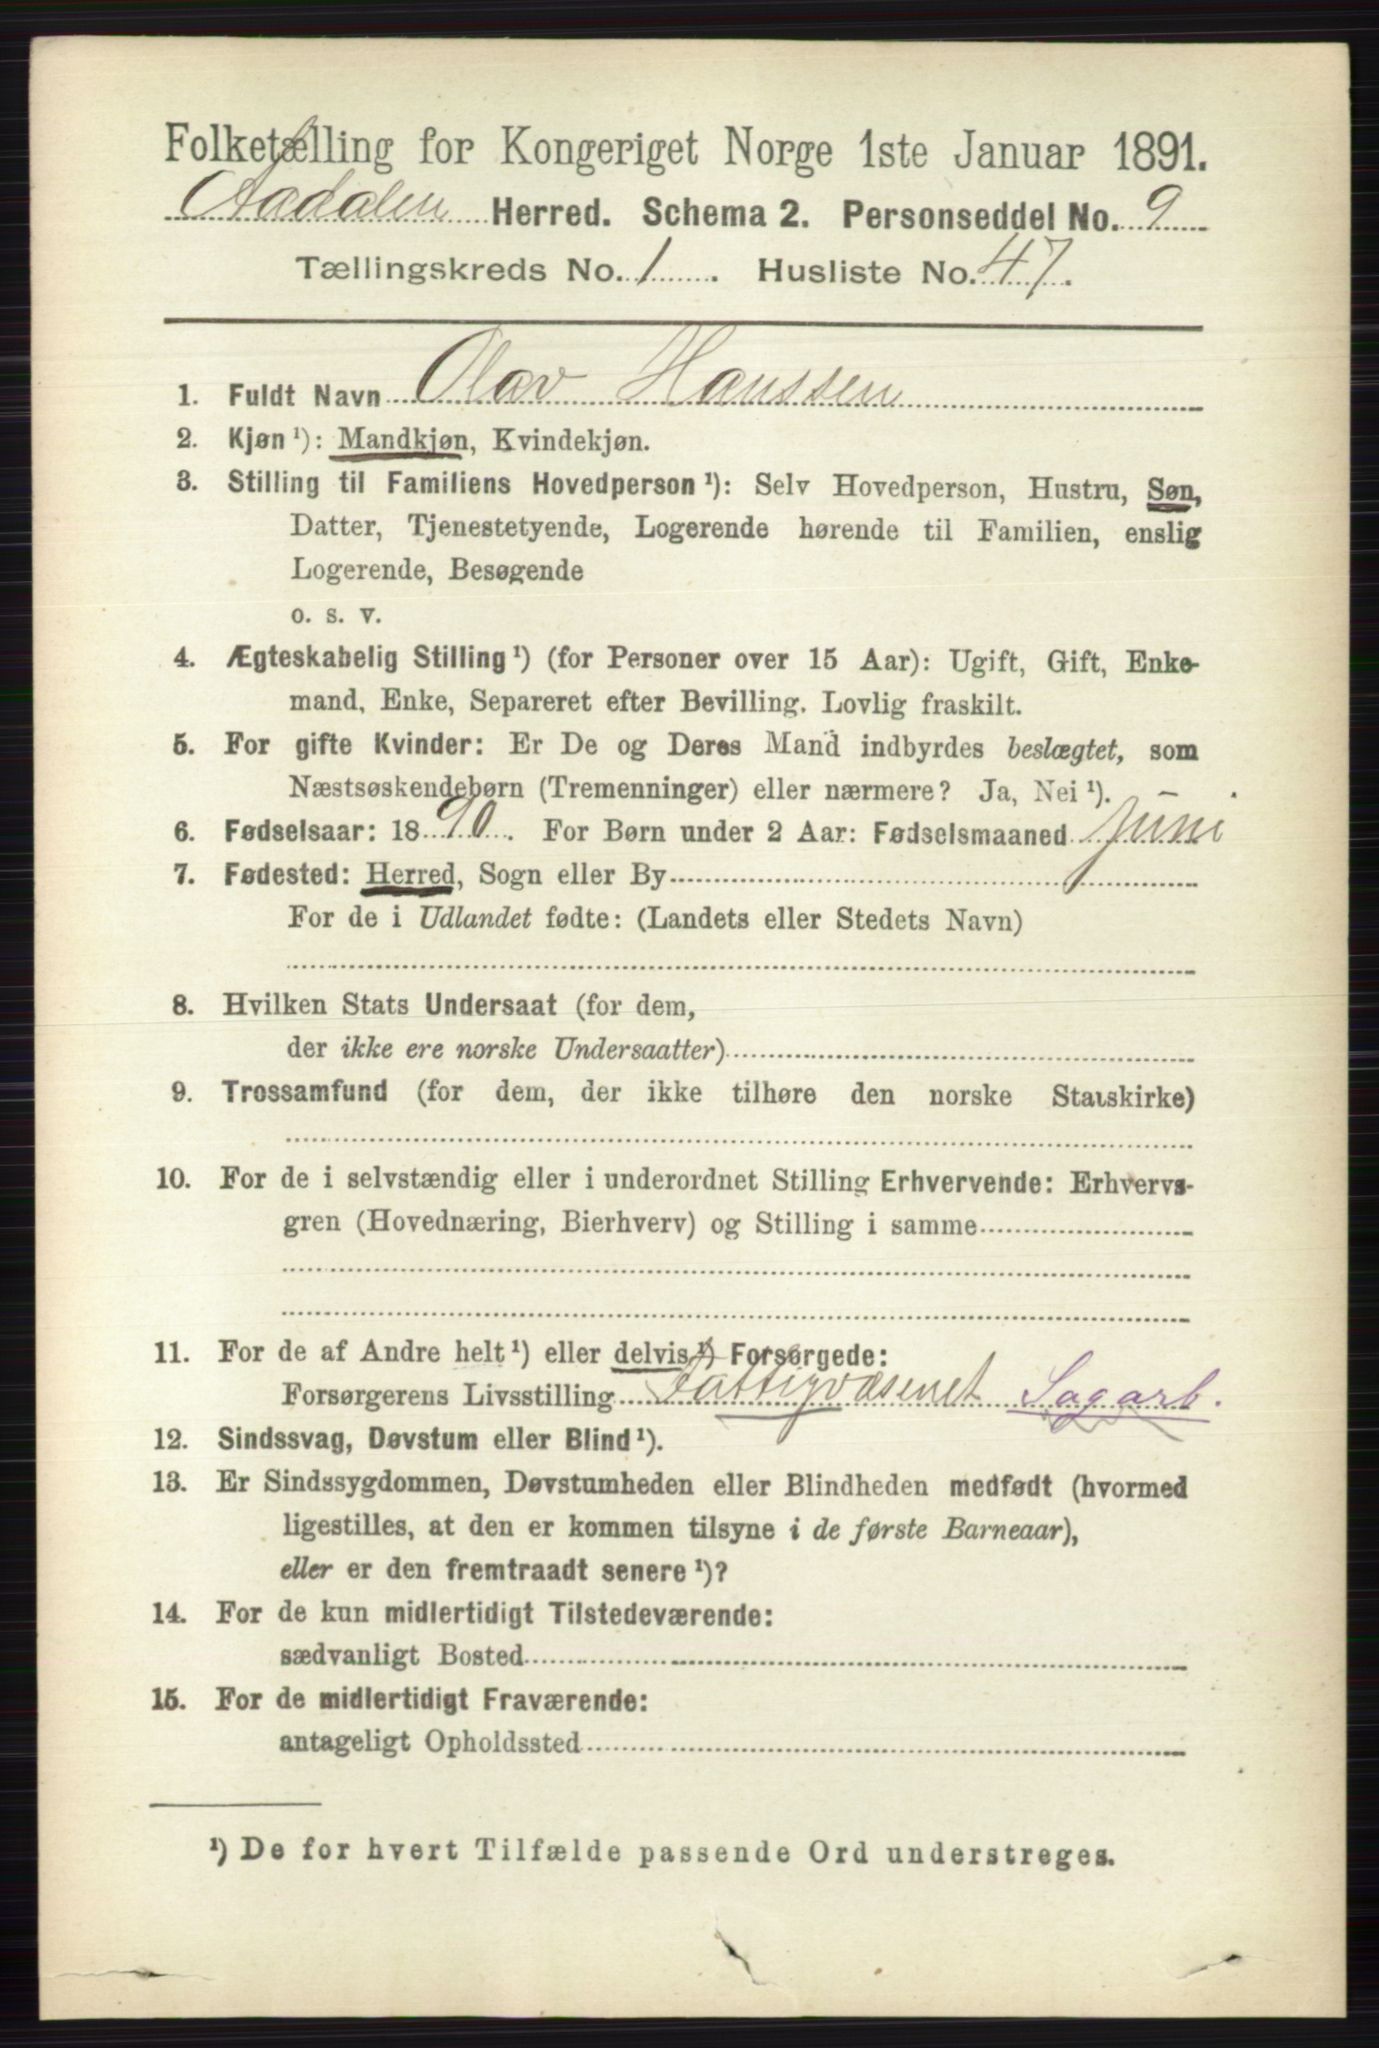 Folketælling for Kongeriget Norge 1ste Januar 1891.
Aadalen Herred. Schema 2. Personseddel No. 9
Tællingskreds No. 1. Husliste No. 47.
1. Fuldt Navn Olav Hanssen
2. Kjøn ¹): Mandkjøn, Kvindekjøn.
3. Stilling til Familiens Hovedperson ¹): Selv Hovedperson, Hustru, Søn,
Datter, Tjenestetyende, Logerende hørende til Familien, enslig
Logerende, Besøgende
o. s. v.
4. Ægteskabelig Stilling ¹) (for Personer over 15 Aar): Ugift, Gift, Enke-
mand, Enke, Separeret efter Bevilling. Lovlig fraskilt.
5. For gifte Kvinder: Er De og Deres Mand indbyrdes beslægtet, som
Næstsøskendebørn (Tremenninger) eller nærmere? Ja, Nei ¹).
6. Fødselsaar: 1890. For Børn under 2 Aar: Fødselsmaaned Juni
7. Fødested: Herred, Sogn eller By
For de i Udlandet fødte: (Landets eller Stedets Navn)
8. Hvilken Stats Undersaat (for dem,
der ikke ere norske Undersaatter)
9. Trossamfund (for dem, der ikke tilhøre den norske Statskirke)
10. For de i selvstændig eller i underordnet Stilling Erhvervende: Erhvervs-
gren (Hovednæring, Bierhverv) og Stilling i samme
11. For de af Andre helt ¹) eller delvis ¹) Forsørgede:
Forsørgerens Livsstilling Fattigvæsenet Sagarb.
12. Sindssvag, Døvstum eller Blind ¹).
13. Er Sindssygdommen, Døvstumheden eller Blindheden medfødt (hvormed
ligestilles, at den er kommen tilsyne i de første Barneaar),
eller er den fremtraadt senere ¹)?
14. For de kun midlertidigt Tilstedeværende:
sædvanligt Bosted
15. For de midlertidigt Fraværende:
antageligt Opholdssted
¹) De for hvert Tilfælde passende Ord understreges.